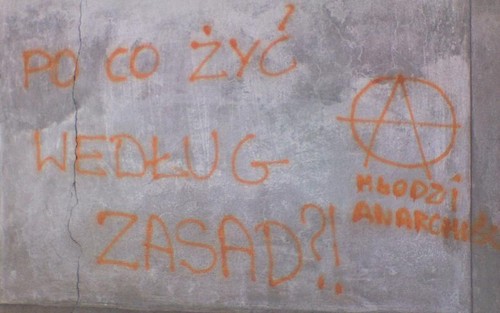 PO CO ŻYĆ
WEDŁUG
ZASAD?!
MŁODZI
ANARCHIŚCI